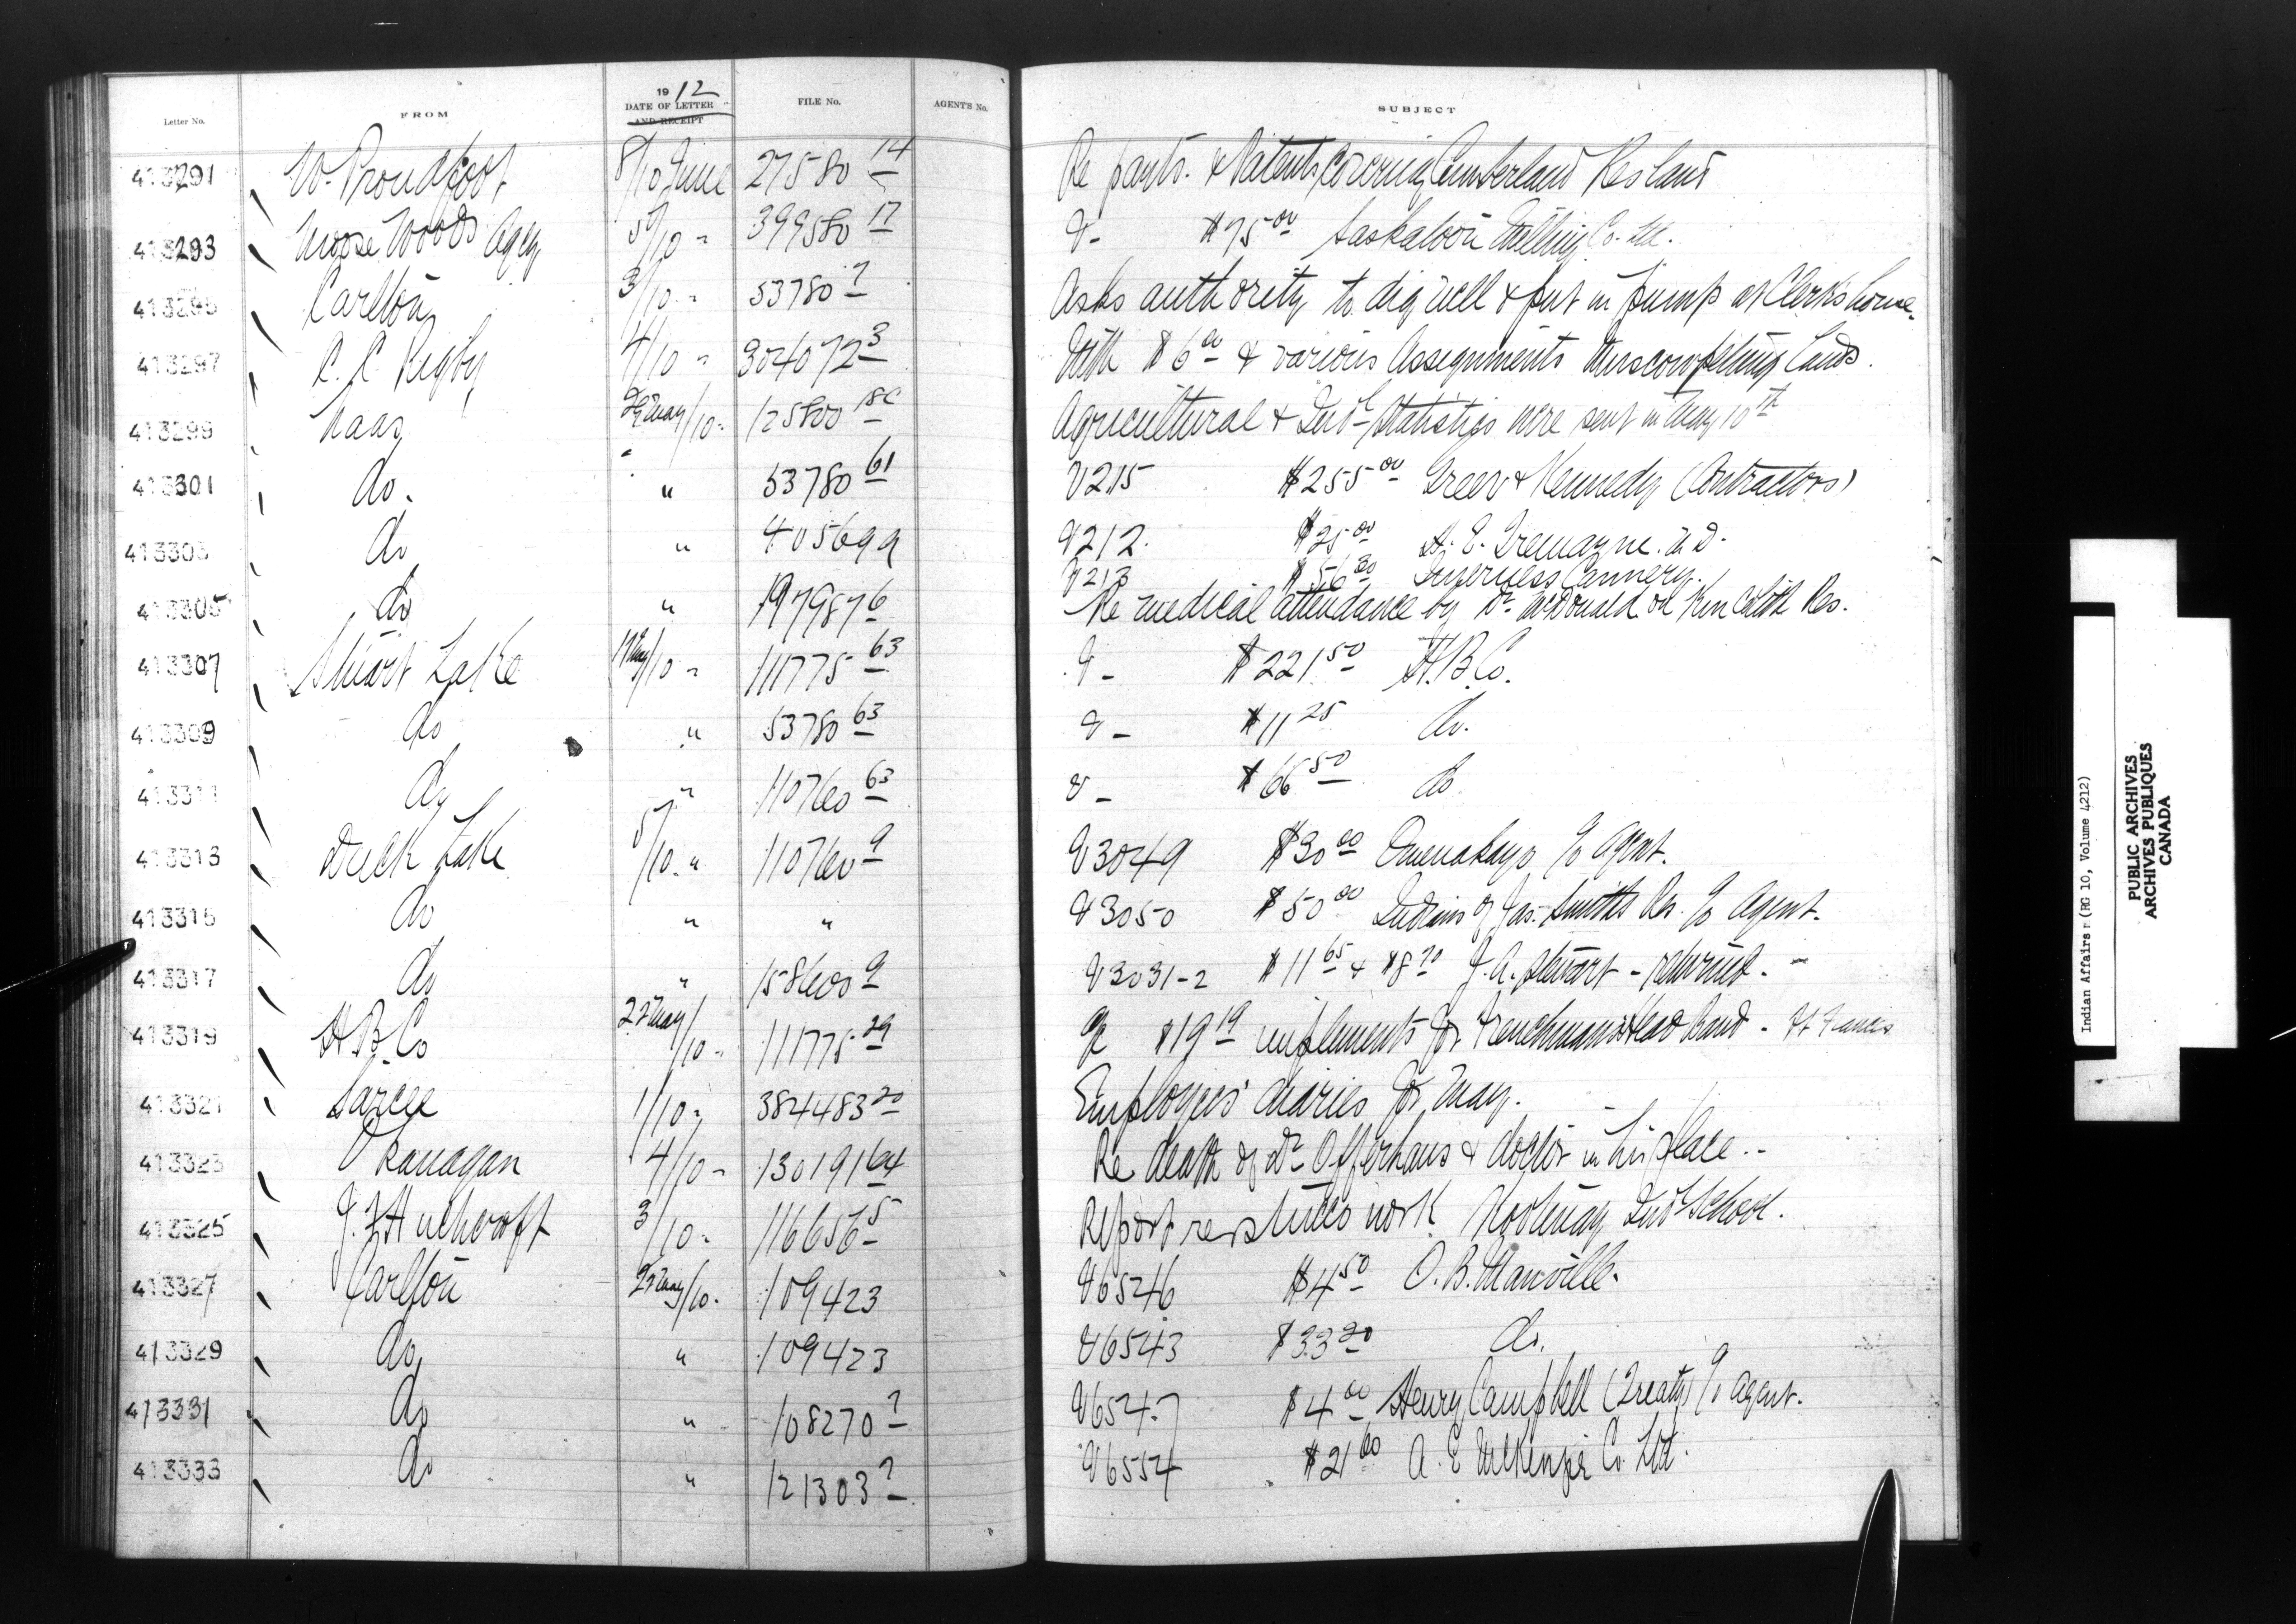 Letter No. FROM 1912 DATE OF LETTER AND RECEIPT FILE No. AGENT'S No. SUBJECT
413291 W. Proudfoot 8/10 June 27580 14 Re pants. & Patents covering Cumberland Res land
413293 Moose Woods Agcy 5/10 " 399580 17 V- $75 00 Saskatoon Milling Co. Ltd.
413295 Carlton 3/10 " 53780 7 Asks authority to dig well & put in pump at Clerk's house.
413297 C. C. Rigby 4/10 " 304072 3 With $6 00 & various Assignments Muscowpetung Lands.
413299 Naas 29 May/10 " 125800 18c Agricultural & Indl Statistics were sent in May 10th
413301 do. " 53780 61 V215 $255 00 Greer & Kennedy (Contractors)
413303 do " 405699 V212. $25 00 H. E. Tremayne. M.D.
V213 $56 30 Inverness Cannery.
413305 do " 197987 6 Re medical attendance by Dr McDonald on Kincolith Res.
413307 Stuart Lake 17 May/10 " 111775 63 V- $221 50 H.B.Co.
413309 do " 53780 63 V- $11 25 do.
413311 do " 110760 63 V- $66 50 do
413313 Duck Lake 5/10 " 110760 9 V3049 $30 00 c/o Agent.
413315 do " " V3050 $50 00 Indians of Jas. Smiths Res. c/o Agent.
413317 do " 158600 9 V3031-2 $11 65 & $8 70 J. A. Stewart - returned. -
413319 H.B.Co 22 May/10 " 111775 29 V $19 19 implements for Frenchman's Head Band - Ft Francis
413321 Sarcee 1/10 " 384483 20 Employees' diaries for May.
413323 Okanagan 4/10 " 130191 64 Re death of Dr Offerhaus & doctor in his place.
413325 3/10 " 116656 5 Report re work Kootenay Indl School.
413327 Carlton 22 May/10 " 109423 V6546 $4 50 O. B. Manville.
413329 do " 109423 V6543 $33 20 do.
413331 do " 108270 7 V6547 $4 00 Henry Campbell (Treaty) c/o agent.
413333 do " 121303 7 V6554 $21 60 A. E McKenzie Co. Ltd.
Indian Affairs (RG 10, Volume 4212)
PUBLIC ARCHIVES
ARCHIVES PUBLIQUES
CANADA